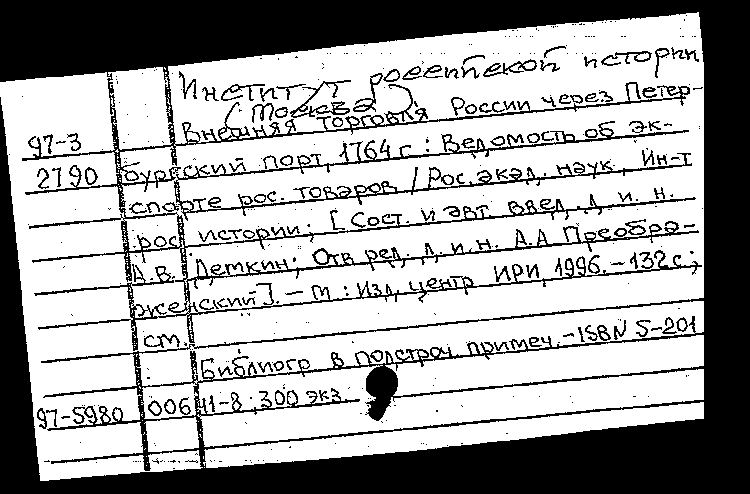 Институт российской истории
(Москва)
Внешняя торговля России через Петер-
97-3
2790 бургский порт, 1764 г. : Ведомость об эк-
спорте рос. товаров / Рос. акад. наук, Ин-т
рос. истории; [Сост. и авт. введ. д. и. н.
А.В. Демкин; Отв. ред. д. и. н. А.А Преобра-
женский]. - М : Изд. центр ИРИ, 1996. - 132 с;
см.
Библиогр в подстроч. примеч. - ISBN 5-201
97-5980 00611-8 ; 300 экз